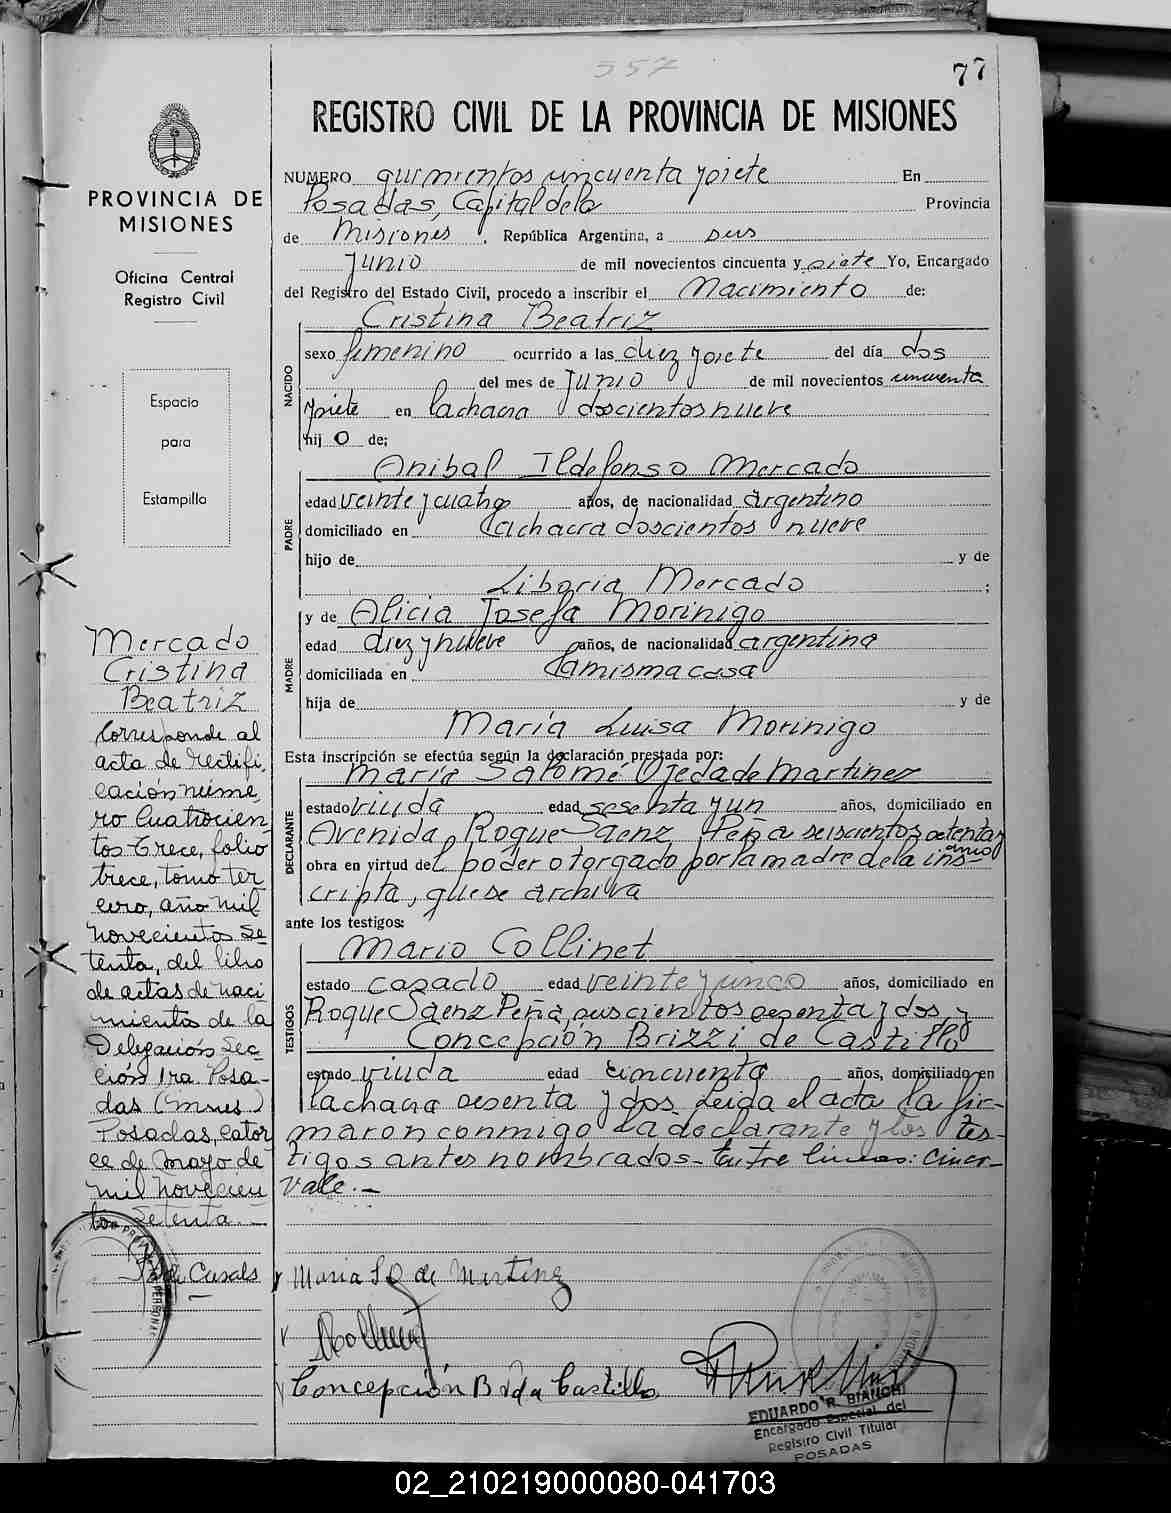 557
77
REGISTRO CIVIL DE LA PROVINCIA DE MISIONES
NUMERO quinientos cincuenta y siete En
Posadas, Capital de la Provincia
de Misiones, República Argentina, a seis
Junio de mil novecientos cincuenta y siete Yo, Encargado
del Registro del Estado Civil, procedo a inscribir el Nacimiento de:
NACIDO
Cristina Beatriz
sexo femenino ocurrido a las diez y siete del día dos
del mes de Junio de mil novecientos cincuenta
y siete en la chacra doscientos nueve
hij o de;
PADRE
Anibal Ildefonso Mercado
edad veinte y cuatro años, de nacionalidad argentino
domiciliado en la chacra doscientos nueve
hijo de y de
Liboria Mercado ;
MADRE
y de Alicia Josefa Morinigo
edad diez y nueve años, de nacionalidad argentina
domiciliada en la misma casa
hija de y de
María Luisa Morinigo
Esta inscripción se efectúa según la declaración prestada por:
DECLARANTE
María Salomé Ojeda de Martinez
estado viuda edad sesenta y un años, domiciliado en
Avenida Roque Saenz Peña seiscientos setenta y
cinco
obra en virtud del poder otorgado por la madre de la ins-
cripta, que se archiva
ante los testigos:
TESTIGOS
Mario Collinet
estado casado edad veinte y cinco años, domiciliado en
Roque Saenz Peña, seiscientos sesenta y dos, y
Concepción Brizzi de Castillo
estado viuda edad cincuenta años, domiciliado en
la chacra sesenta y dos. Leida el acta la fir-
maron conmigo la declarante y los tes-
tigos antes nombrados- Entre lineas: cinco-
Vale.-
Maria S O de Martinez
Concepción B vda Castillo
EDUARDO R. BIANCHI
Encargado Especial del
Registro Civil Titular
POSADAS
PROVINCIA DE
MISIONES
Oficina Central
Registro Civil
Espacio
para
Estampilla
Mercado
Cristina
Beatriz
Corresponde al
acta de rectifi,
cación núme,
ro Cuatrocien,
tos trece, folio
trece, tomo ter
cero, año mil
novecientos se
tenta, del libro
de actas de naci
mientos de la
Delegación Sec
ción 1ra Posa-
das (Mnes.)
Posadas, cator
ce de Mayo de
mil novecien
tos setenta.-
Casals
02_210219000080-041703